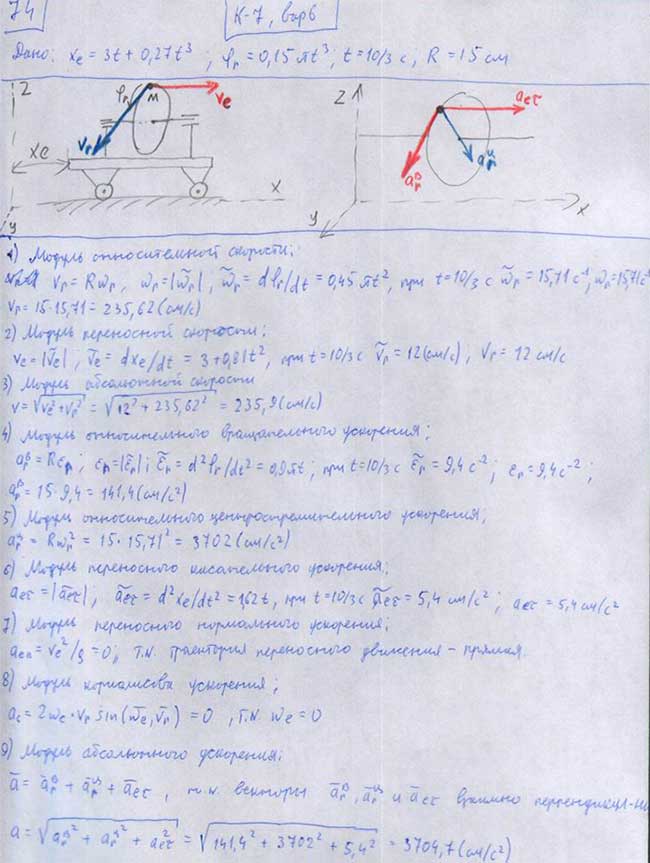 74
К-7, вар 6
Дано: xe = 3t + 0,27t³ ; φr = 0,15πt³, t = 10/3 c, R = 15 см
Z φr M ve vr xe x y
Z aeτ arᵇ arц x y
1) Модуль относительной скорости:
vr = Rωr, ωr = |ω̃r|, ω̃r = dφr/dt = 0,45πt², при t = 10/3 c ω̃r = 15,71 c⁻¹, ωr = 15,71 c⁻¹
vr = 15·15,71 = 235,62 (см/с)
2) Модуль переносной скорости:
ve = |ṽe|, ṽe = dxe/dt = 3 + 0,81t², при t = 10/3 c ṽr = 12 (см/с), vr = 12 см/с
3) Модуль абсолютной скорости
v = √(ve² + vr²) = √(12² + 235,62²) = 235,9 (см/с)
4) Модуль относительного вращательного ускорения:
arᵇ = Rεr, εr = |ε̃r|; ε̃r = d²φr/dt² = 0,9πt; при t = 10/3 c ε̃r = 9,4 c⁻²; εr = 9,4 c⁻²;
arᵇ = 15·9,4 = 141,4 (см/с²)
5) Модуль относительного центростремительного ускорения,
arц = Rωr² = 15·15,71² = 3702 (см/с²)
6) Модуль переносного касательного ускорения:
aeτ = |ãeτ|, ãeτ = d²xe/dt² = 1,62t, при t = 10/3 c ãeτ = 5,4 см/с²; aeτ = 5,4 см/с²
7) Модуль переносного нормального ускорения:
aen = ve²/ρ = 0, т.к. траектория переносного движения - прямая.
8) Модуль кориолисова ускорения;
ac = 2ωe·vr sin(ω̄e, v̄r) = 0, т.к. ωe = 0
9) Модуль абсолютного ускорения:
ā = ārᵇ + ārц + āeτ, т.к. векторы ārᵇ, ārц и āeτ взаимно перпендикуляр-ны
a = √(arᵇ² + arц² + aeτ²) = √(141,4² + 3702² + 5,4²) = 3704,7 (см/с²)